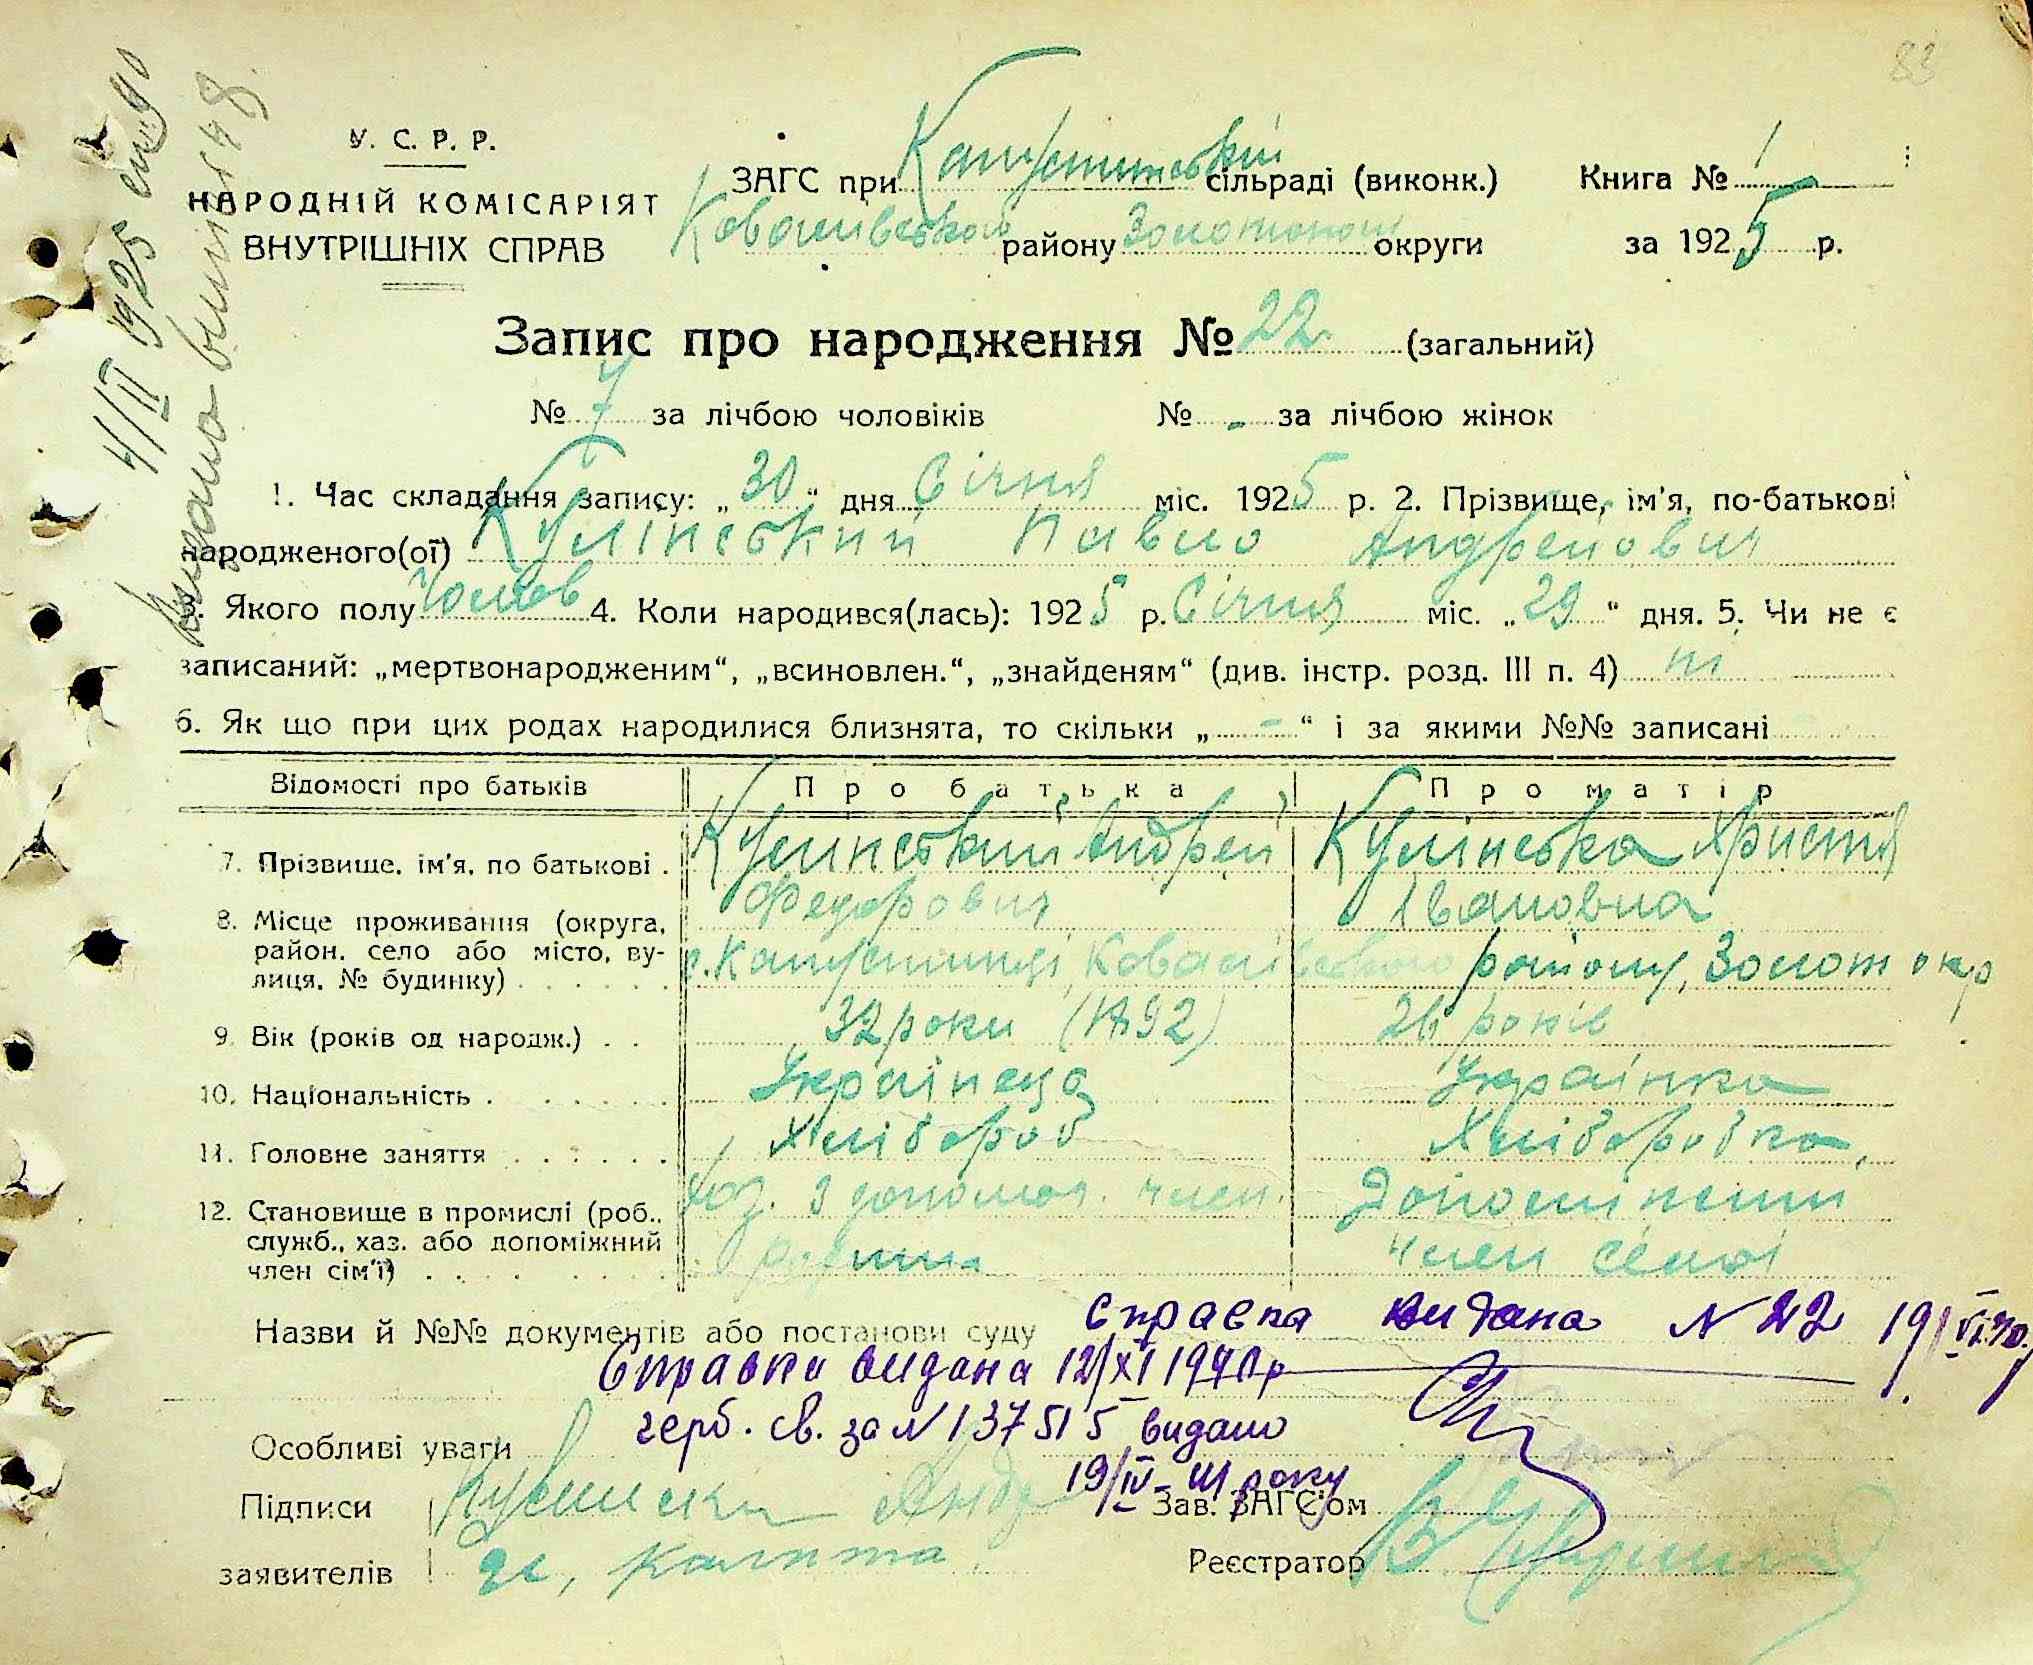 83
У. С. Р. Р.
НАРОДНІЙ КОМІСАРІЯТ
ВНУТРІШНІХ СПРАВ
ЗАГС при Капустинській сільраді (виконк.) Книга № 1
Ковалівської району Золотонош округи за 1925 р.
Запис про народження № 22 (загальний)
№ 7 за лічбою чоловіків № - за лічбою жінок
1. Час складання запису: „30“ дня Січня міс. 1925 р. 2. Прізвище, ім'я, по-батькові
народженого(ої) Кулінський Павло Андрейович
3. Якого полу Чолов 4. Коли народився(лась): 1925 р. Січня міс. „29“ дня. 5. Чи не є
записаний: „мертвонародженим“, „всиновлен.“, „знайденям“ (див. інстр. розд. III п. 4) ні
6. Як що при цих родах народилися близнята, то скільки „-“ і за якими №№ записані
Відомості про батьків Про батька Про матір
7. Прізвище, ім'я, по батькові . Кулинський Андрей Кулінська Христя
Федорович Івановна
8. Місце проживання (округа,
район, село або місто, ву-
лиця, № будинку) . . . . . . Капустинці, Ковалівського району, Золот окр
9. Вік (років од народж.) . . 32 роки (1892) 26 років
10. Національність . . . . . . Українець Українка
11. Головне заняття . . . . . . Хлібороб Хліборобка,
12. Становище в промислі (роб.,
служб., хаз. або допоміжний
член сім'ї) . . . . . Хаз. з допомог. член. Допоміжний
родини член семї
Назви й №№ документів або постанови суду Справка видана N 22 19/VI 40.
Справка видана 12/XI 1940 р
герб. св. за N 137515 видано
Особливі уваги
19/IV-41 року
Підписи Зав. ЗАГС'ом
заявителів Калита Реєстратор
4/II 1925